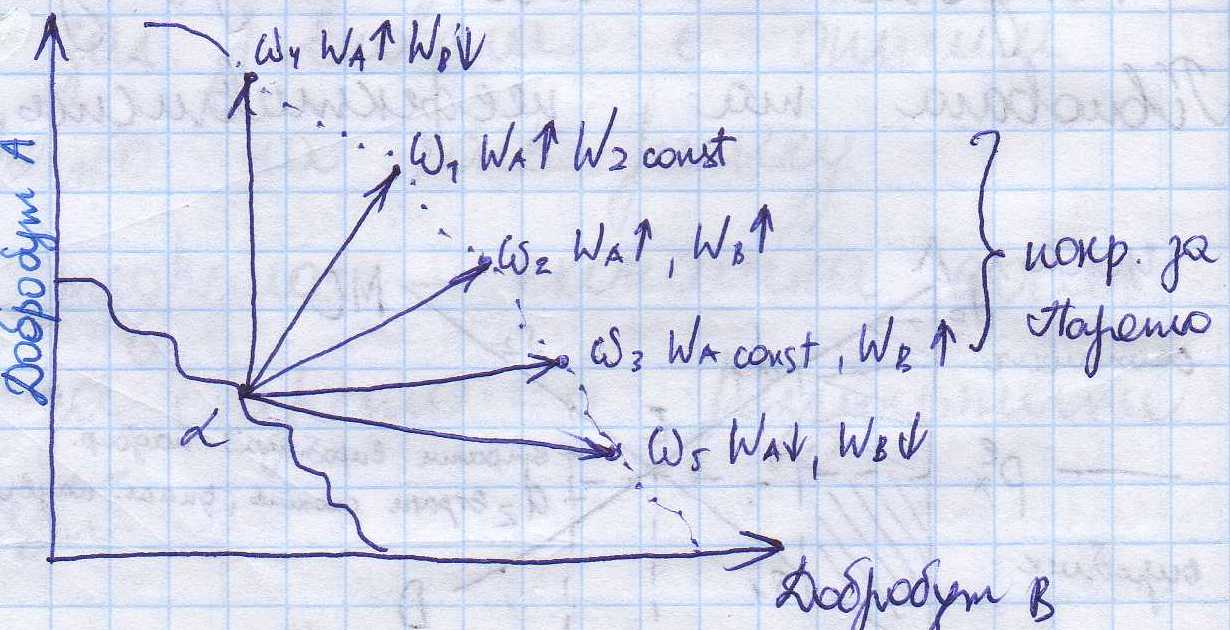 Добробут А
ω4 WA↑ WB↓
ω1 WA↑ W2 const
ω2 WA↑, WB↑
покр. за
Парето
ω3 WA const, WB↑
α
ω5 WA↓, WB↓
Добробут В